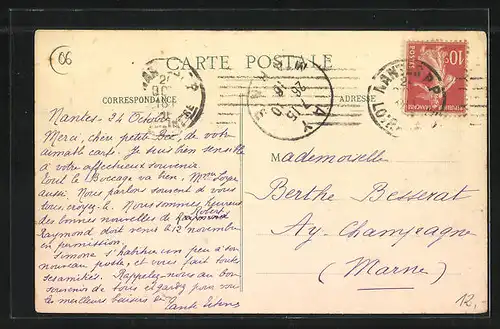 06
CARTE POSTALE
CORRESPONDANCE
ADRESSE
NANTES
LOIRE
AY
MARNE
10
Nantes - 24 Octobre
Merci, cher petit de votre
aimable carte. Je suis bien sensible
à votre affectueux souvenir.
Tout le Boccage va bien, Mme
aussi. Nous parlons souvent de vous
tous, croyez-le. Nous sommes heureux
des bonnes nouvelles de Robert
Raymond doit venir le 12 novembre
en permission.
Simone s'habitue un peu à son
nouveau poste, et vous fait toutes
ses amitiés. Rappelez-nous au bon
souvenir de tous et gardez pour vous
les meilleurs baisers de
Tante
Mademoiselle
Berthe Besserat
Ay-Champagne
(Marne)
12,